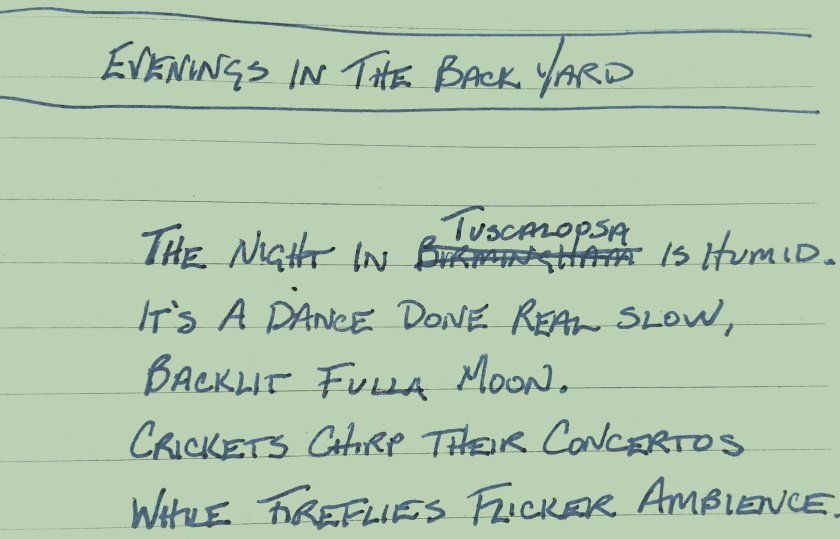 EVENINGS IN THE BACK YARD
TUSCALOOSA
THE NIGHT IN BIRMINGHAM IS HUMID.
IT'S A DANCE DONE REAL SLOW,
BACKLIT FULLA MOON.
CRICKETS CHIRP THEIR CONCERTOS
WHILE FIREFLIES FLICKER AMBIENCE.